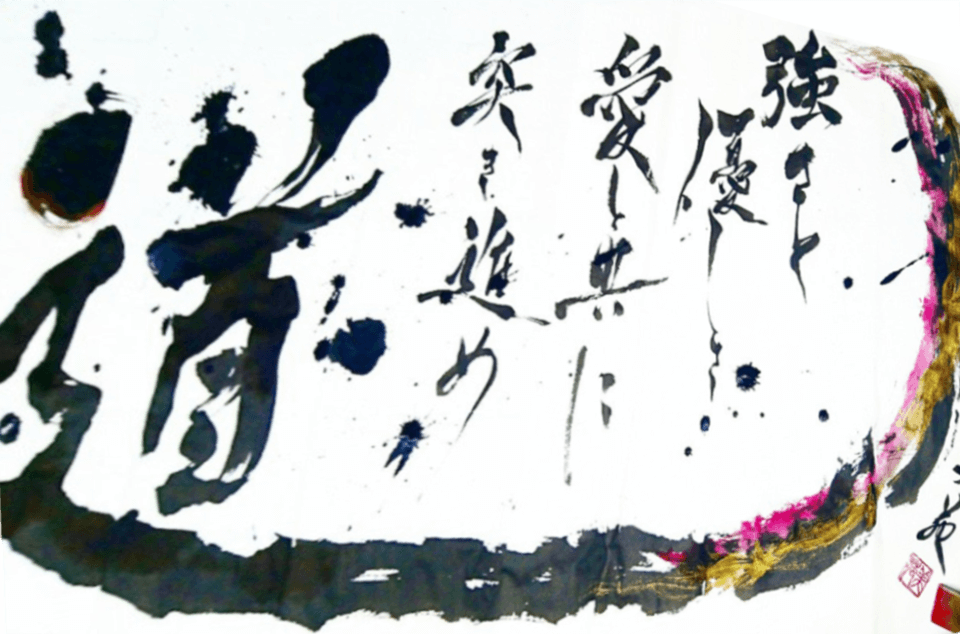 強さと
優しさ
愛と共に
突き進め
道